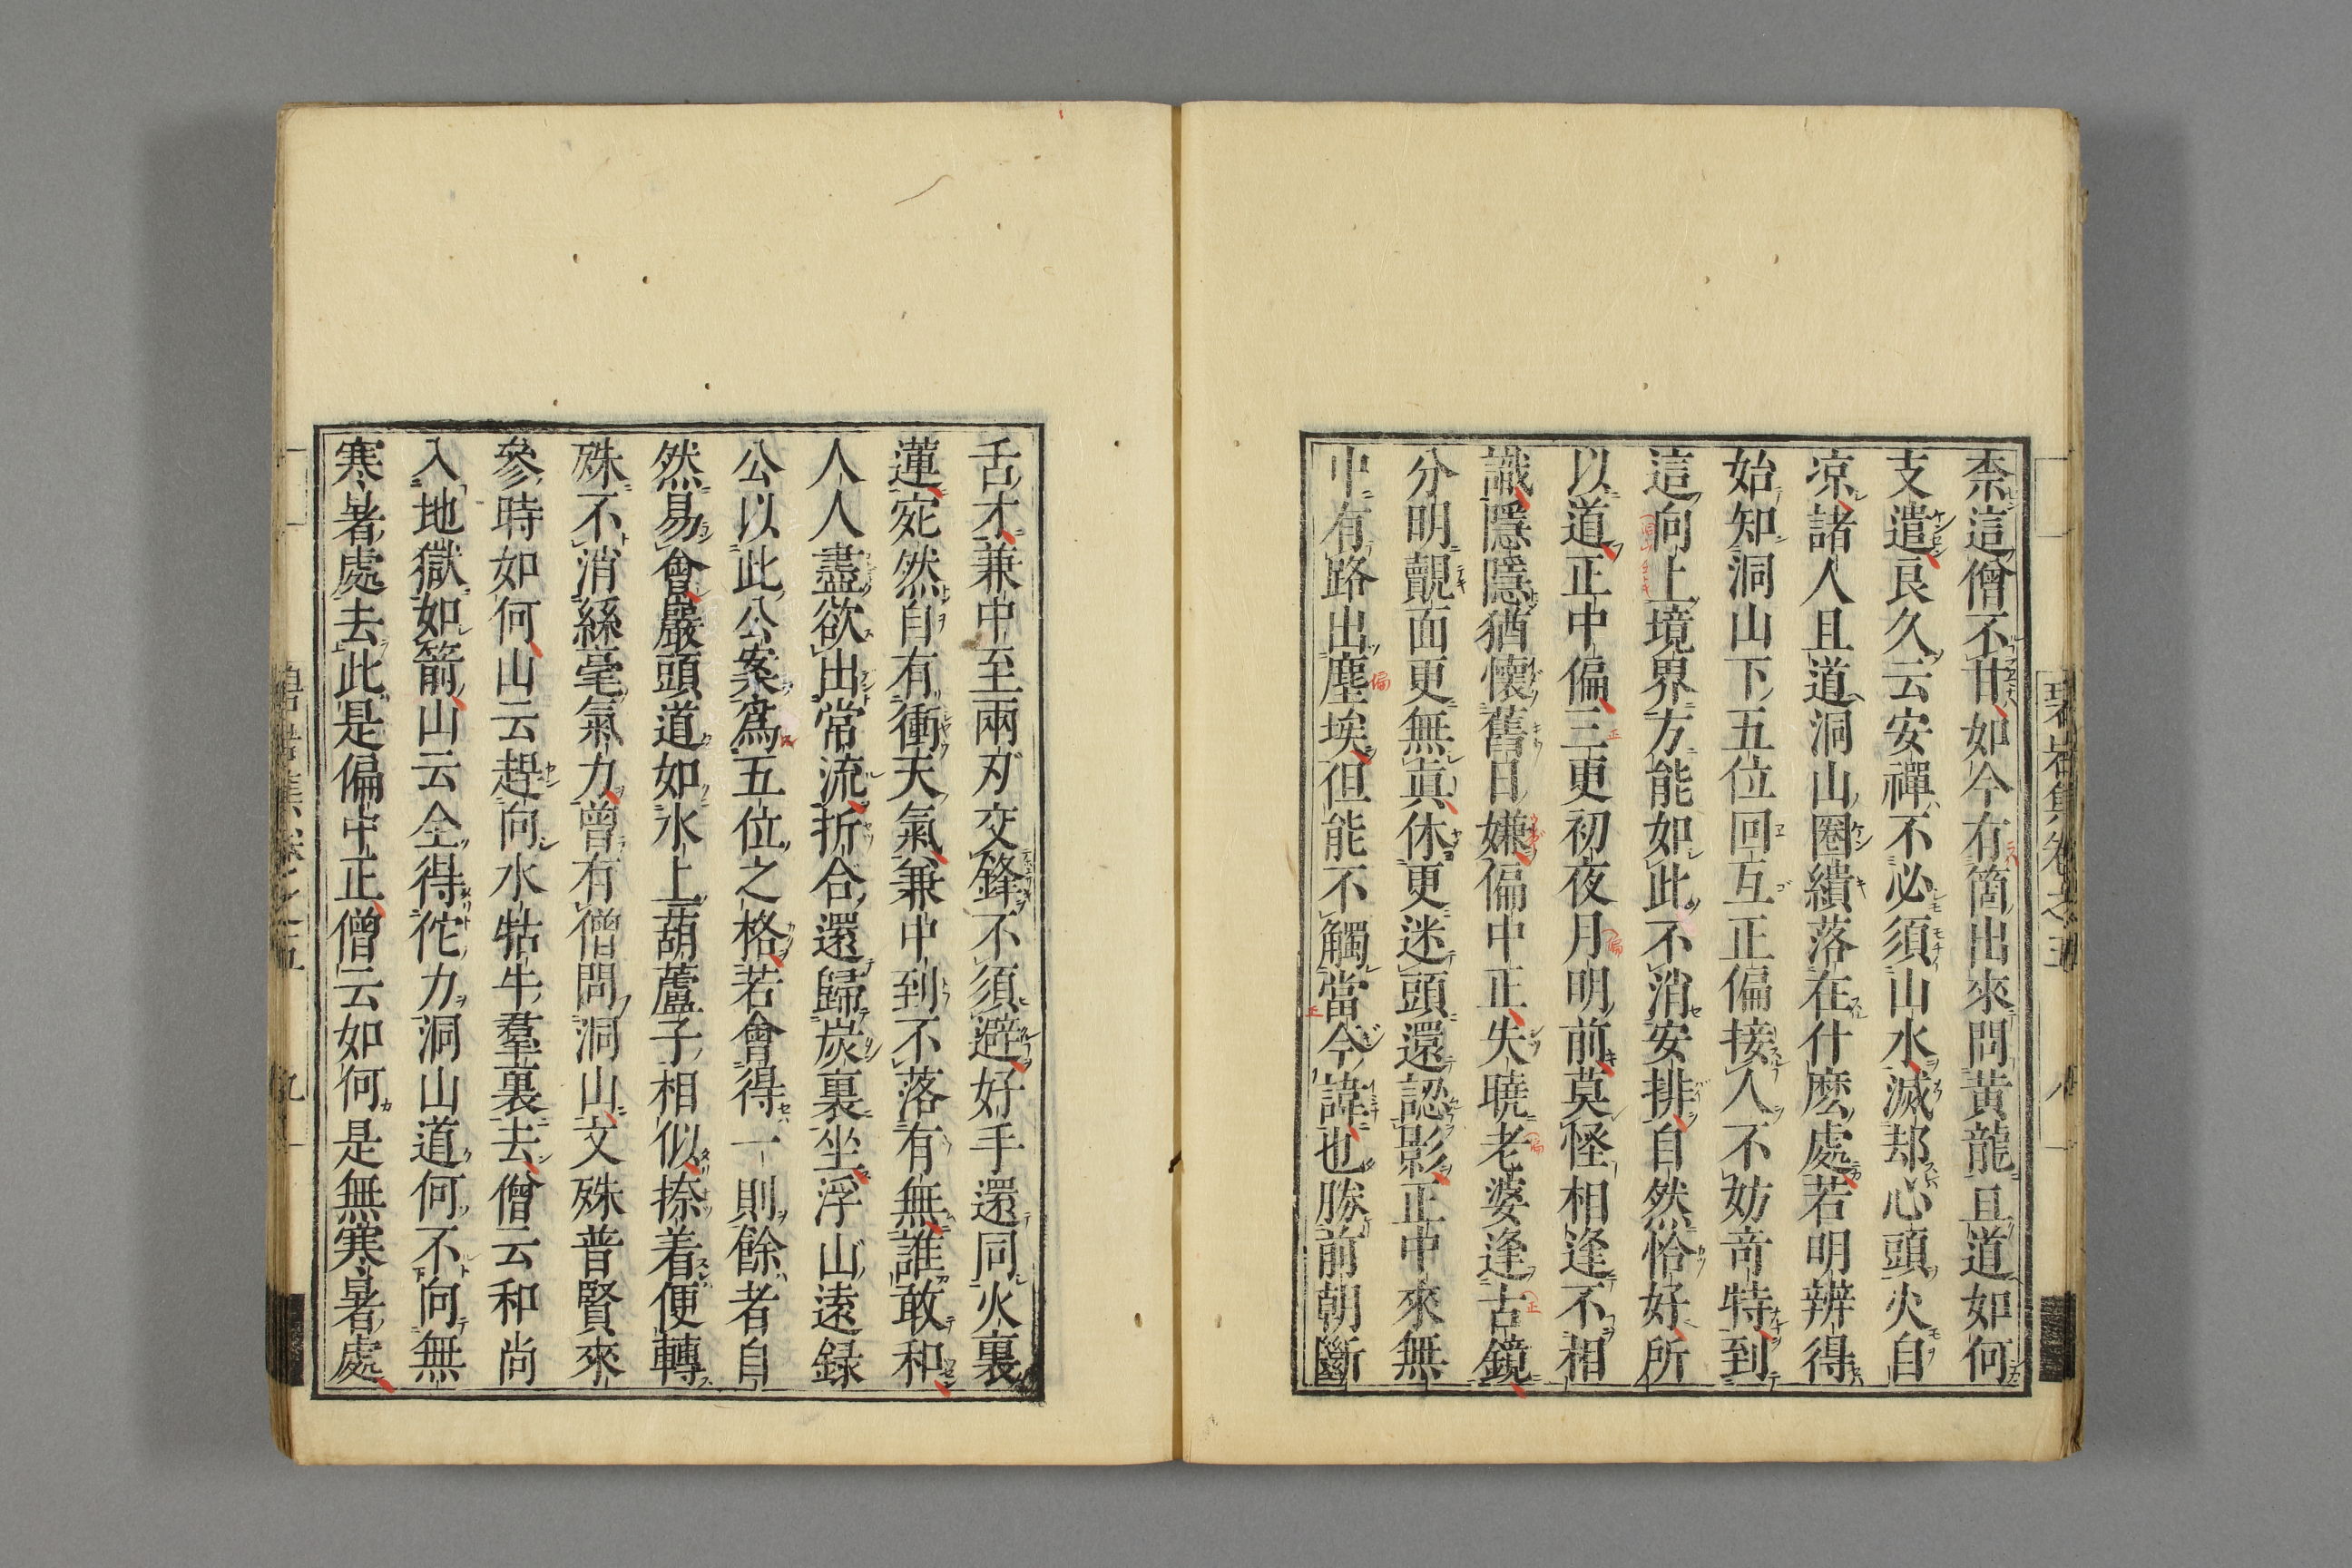 柰這僧不甘如今有箇出來問黃龍且道如何
支遣良久云安禪不必須山水滅却心頭火自
凉諸人且道洞山圈繢落在什麽處若明辨得
始知洞山下五位回互正偏接人不妨奇特到
這向上境界方能如此不消安排自然恰好所
以道正中偏三更初夜月明前莫怪相逢不相
識隱隱猶懷舊日嫌偏中正失曉老婆逢古鏡
分明覿面更無眞休更迷頭還認影正中來無
中有路出塵埃但能不觸當今諱也勝前朝斷
舌才兼中至兩刃交鋒不須避好手還同火裏
蓮宛然自有衝天氣兼中到不落有無誰敢和
人人盡欲出常流折合還歸炭裏坐浮山遠録
公以此公案爲五位之格若會得一則餘者自
然易會巖頭道如水上葫蘆子相似捺着便轉
殊不消絲毫氣力曾有僧問洞山文殊普賢來
參時如何山云趕向水牯牛羣裏去僧云和尚
入地獄如箭山云全得佗力洞山道何不向無
寒暑處去此是偏中正僧云如何是無寒暑處
碧岩集卷之五
八
九